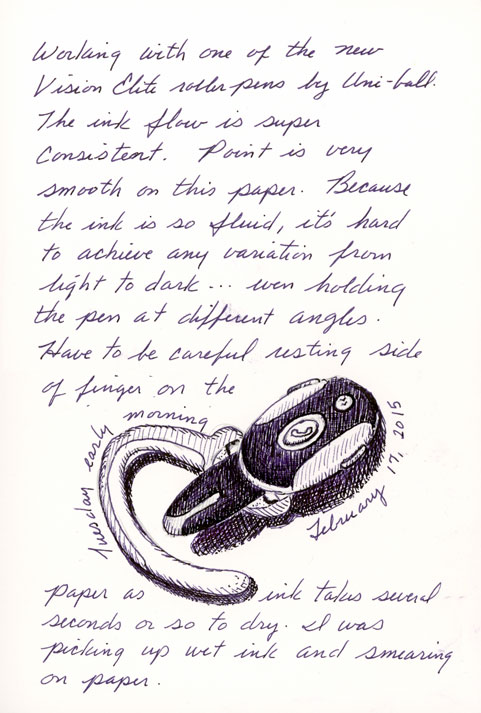 Working with one of the new
Vision Elite roller pens by Uni-ball.
The ink flow is super
consistent. Point is very
smooth on this paper. Because
the ink is so fluid, it's hard
to achieve any variation from
light to dark... even holding
the pen at different angles.
Have to be careful resting side
of finger on the
paper as ink takes several
seconds or so to dry. I was
picking up wet ink and smearing
on paper.
Tuesday early morning
February 17, 2015